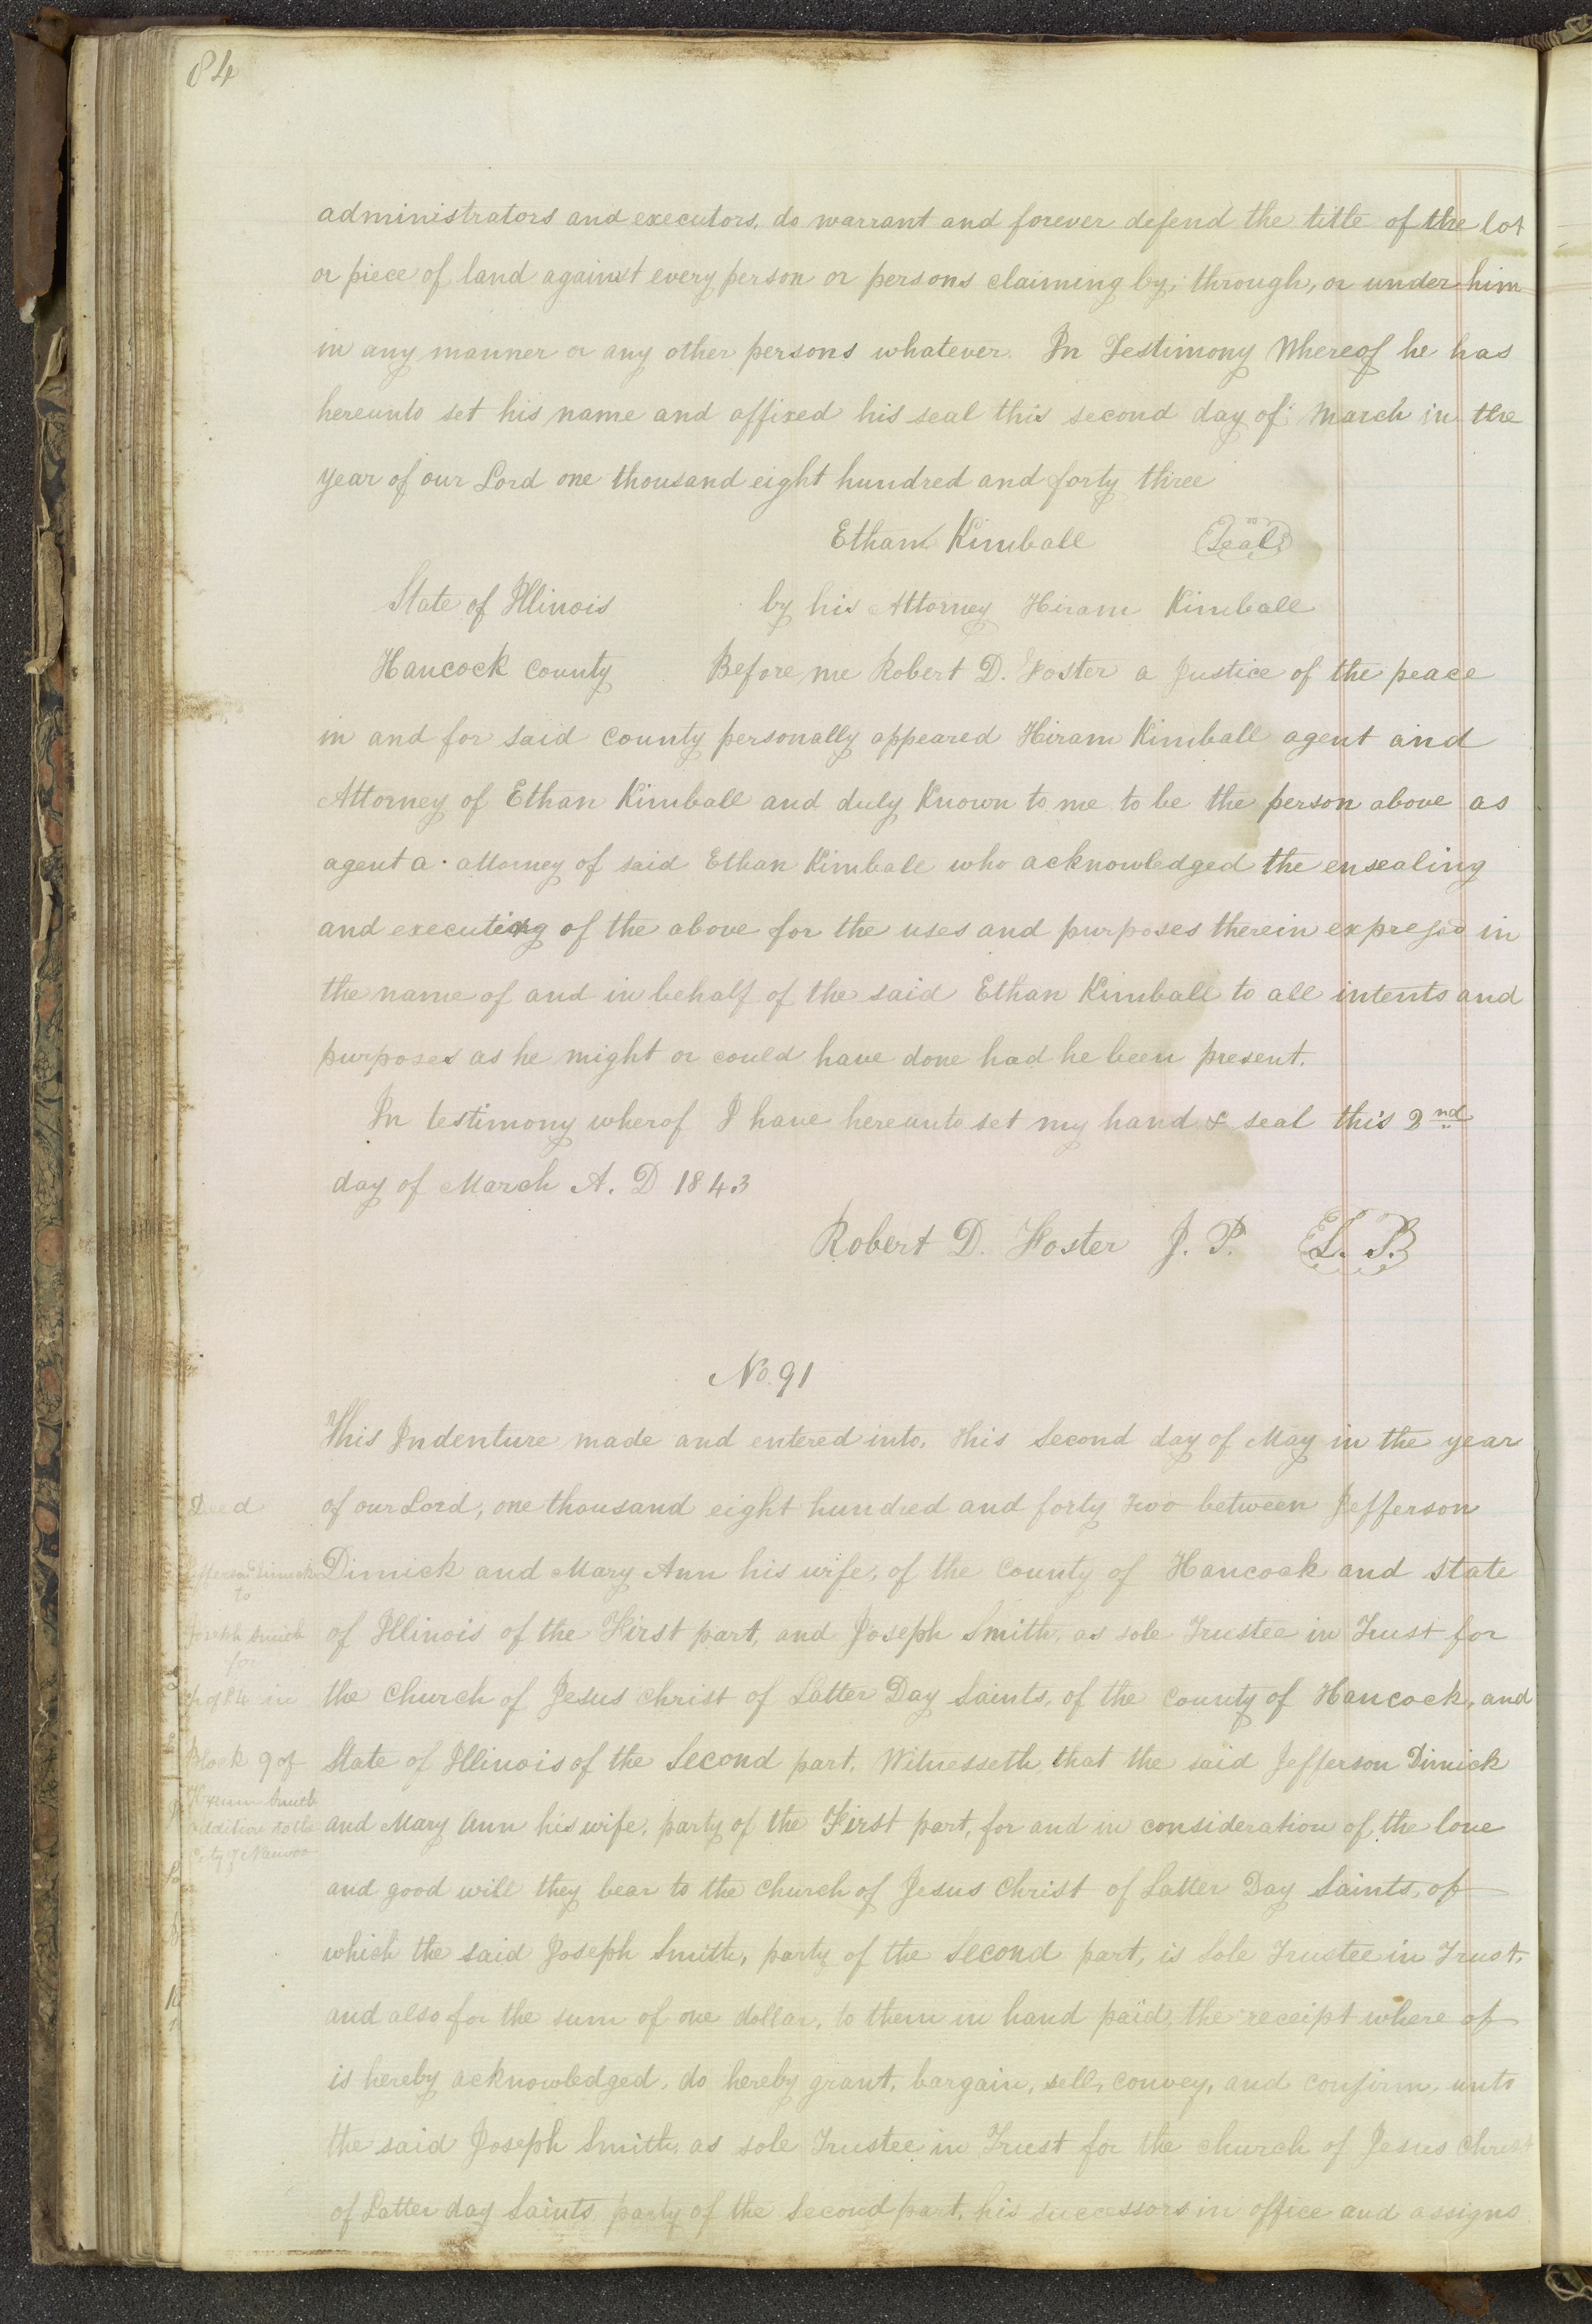 84
administrators and executors, do warrant and forever defend the title of the lot
or piece of land against every person or persons claiming by, through, or under him
in any manner or any other persons whatever. In Testimony Whereof he has
hereunto set his name and affixed his seal this second day of March in the
year of our Lord one thousand eight hundred and forty three
Ethan Kimball Seal
State of Illinois by his Attorney Hiram Kimball
Hancock County Before me Robert D. Foster a Justice of the peace
in and for said County personally appeared Hiram Kimball agent and
Attorney of Ethan Kimball and duly Known to me to be the person above as
agent a. attorney of said Ethan Kimball who acknowledged the ensealing
and executing of the above for the uses and purposes therein expressd in
the name of and in behalf of the said Ethan Kimball to all intents and
purposes as he might or could have done had he been present.
In testimony wherof I have hereunto set my hand & seal this 2nd
day of March A. D 1843
Robert D. Foster J. P. L. S.
No. 91
This Indenture made and entered into, this Second day of May in the year
Deed
of our Lord, one thousand eight hundred and forty two between Jefferson
Jefferson Dimick
Dimick and Mary Ann his wife, of the County of Hancock and State
to
Joseph Smith
of Illinois of the First part, and Joseph Smith, as sole Trustee in Trust for
for
in
the Church of Jesus Christ of Latter Day Saints, of the County of Hancock, and
Block 9 of
State of Illinois of the Second part. Witnesseth, that the said Jefferson Dimick
Hyrum Smith
addition to the
and Mary Ann his wife, party of the First part, for and in consideration of the love
City of Nauvoo
and good will they bear to the Church of Jesus Christ of Latter Day Saints, of
which the said Joseph Smith, party of the Second part, is Sole Trustee in Trust,
and also for the sum of one dollar, to them in hand paid, the receipt where of
is hereby acknowledged, do hereby grant, bargain, sell, convey, and confirm, unto
the said Joseph Smith, as sole Trustee in Trust for the church of Jesus Christ
of Latter day Saints party of the Second part, his successors in office and assigns